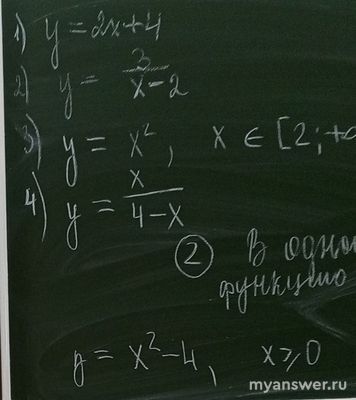 1) y = 2x+4
2) y = 3/(x-2)
3) y = x², x ∈ [2; +
4) y = x/(4-x)
② В одно
функцию
y = x²-4, x ⩾ 0
myanswer.ru